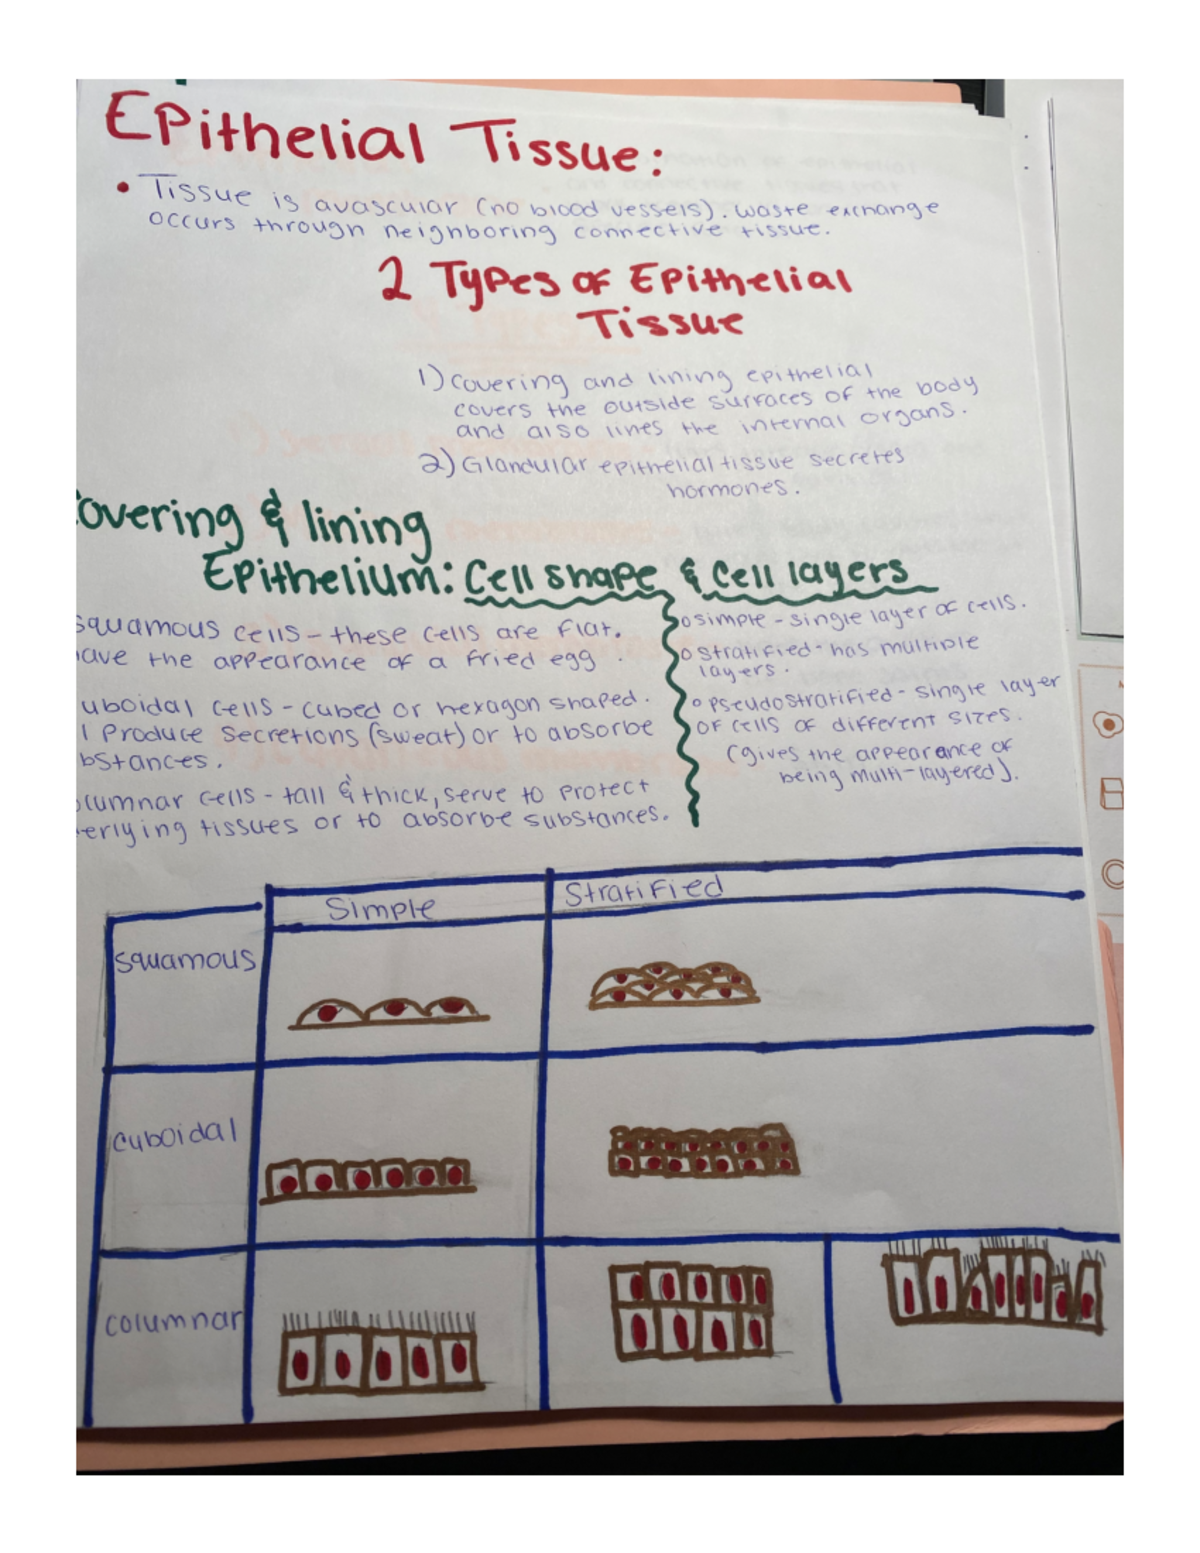 Epithelial Tissue:
• Tissue is avascular (no blood vessels). waste exchange
occurs through neighboring connective tissue.
2 Types of Epithelial
Tissue
1) covering and lining epithelial
covers the outside surfaces of the body
and also lines the internal organs.
2) Glandular epithelial tissue secretes
hormones.
overing & lining
Epithelium: Cell shape & Cell layers
squamous cells - these cells are flat.
ave the appearance of a fried egg.
uboidal cells - cubed or hexagon shaped.
l produce secretions (sweat) or to absorbe
bstances.
olumnar cells - tall & thick, serve to protect
erlying tissues or to absorbe substances.
o simple - single layer of cells.
o stratified - has multiple
layers.
o pseudostratified - single layer
of cells of different sizes.
(gives the appearance of
being multi-layered).
Simple
Stratified
squamous
cuboidal
columnar